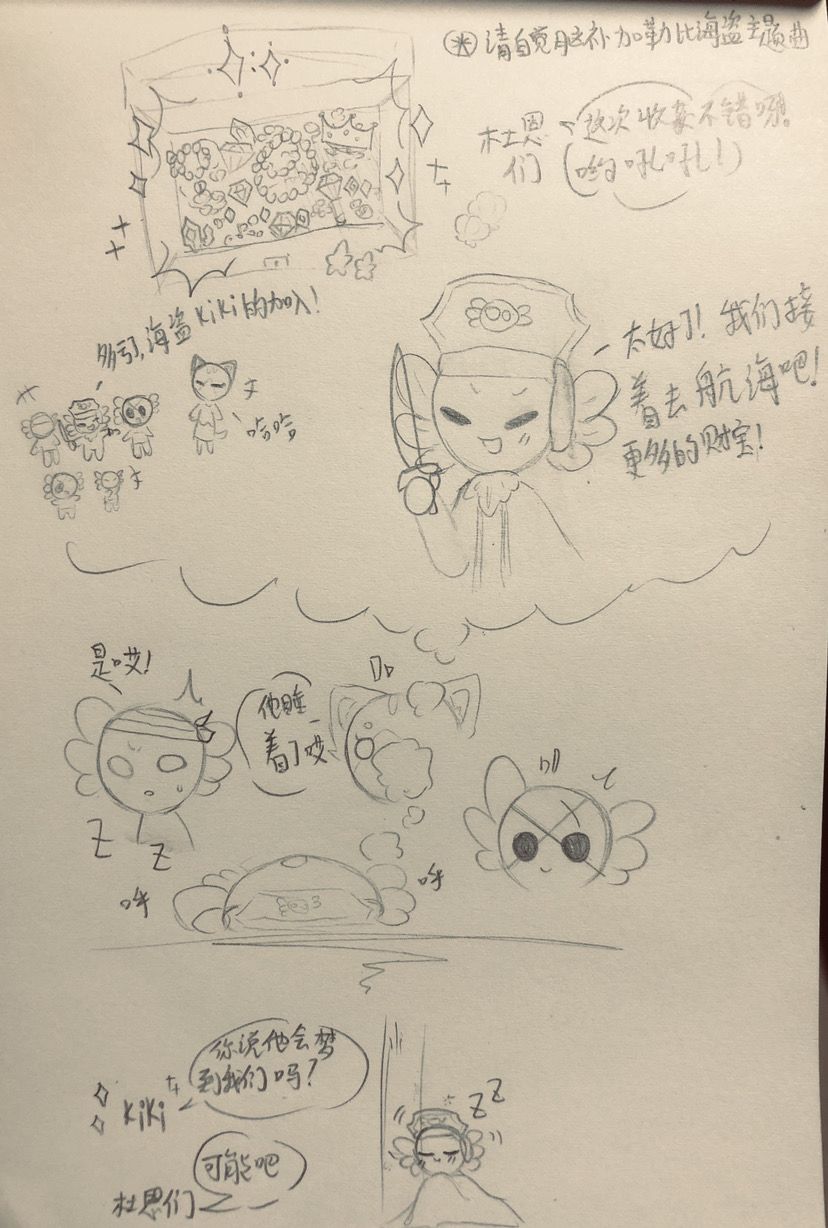 ※请自觉脑补加勒比海盗主题曲
杜恩们
这次收获不错嘛!
(哟吼吼!)
多亏,海盗kiki的加入!
哈哈
太好了!我们接
着去航海吧!
更多的财宝!
是哎!
他睡
着了哎
Z
Z
呼
呼
你说他会梦
到我们吗?
kiki
可能吧
杜恩们
Z Z